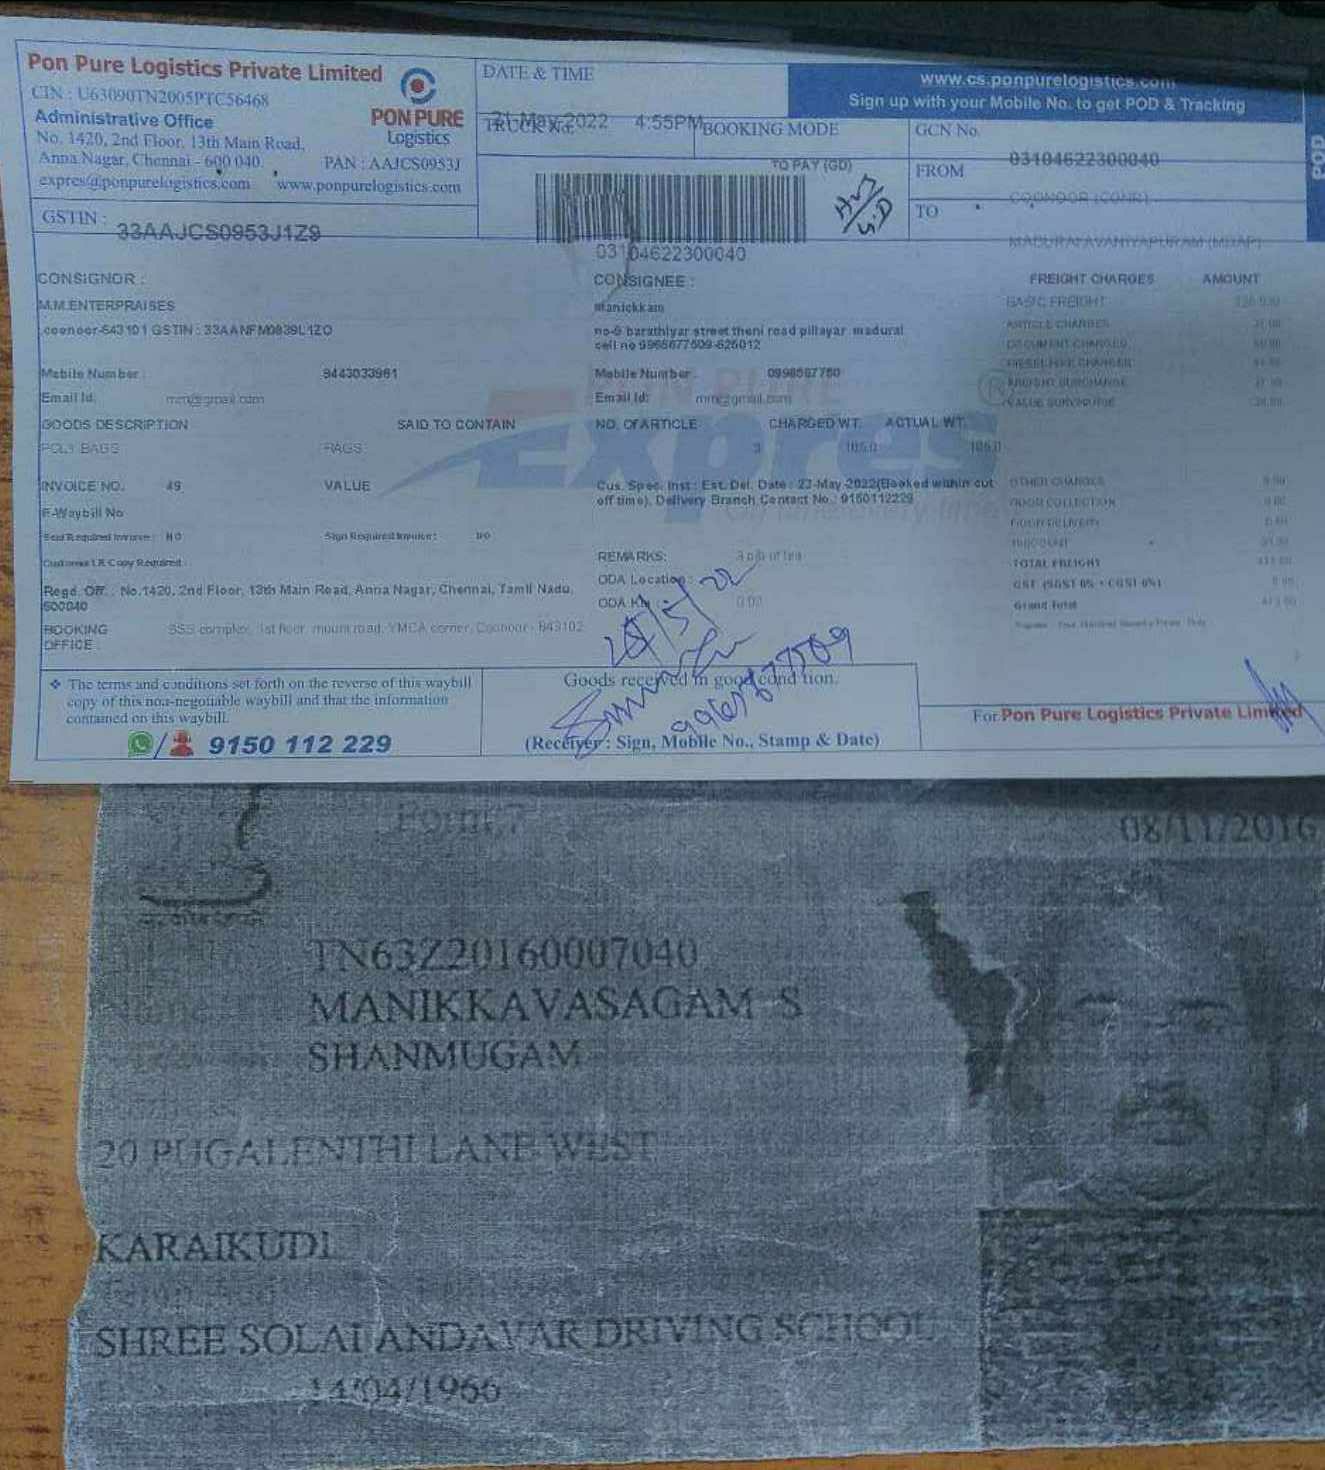 Pon Pure Logistics Private Limited
CIN : U63090TN2005PTC56468
Administrative Office
No. 1420, 2nd Floor, 13th Main Road,
Anna Nagar, Chennai - 600 040.
PAN : AAJCS0953J
expres@ponpurelogistics.com www.ponpurelogistics.com
PON PURE
Logistics
GSTIN :
33AAJCS0953J1Z9
DATE & TIME
21-May-2022 4:55PM
TRUCK No.
BOOKING MODE
TO PAY (GD)
03104622300040
www.cs.ponpurelogistics.com
Sign up with your Mobile No. to get POD & Tracking
POD
GCN No.
03104622300040
FROM
COONOOR (CONR)
TO
MADURAI AVANIYAPURAM (MDAP)
CONSIGNOR :
M.M.ENTERPRAISES
coonoor-643101 GSTIN : 33AANFM0839L1ZO
Mobile Number : 9443033981
Email Id. mm@gmail.com
CONSIGNEE :
Manickkam
no-6 barathiyar street theni road pillayar madurai
cell no 9965877509-625012
Mobile Number : 0998587750
Email Id: mm@gmail.com
GOODS DESCRIPTION SAID TO CONTAIN NO. Of ARTICLE CHARGED WT. ACTUAL WT.
POLY BAGS BAGS 3 105.0 105.0
PON PURE
Expres
INVOICE NO. 49 VALUE
E-Waybill No
Seal Required Invoice : NO Sign Required Invoice : NO
Customer LR Copy Required :
Cus. Spec. Inst : Est. Del. Date : 23-May-2022(Booked within cut
off time), Delivery Branch Contact No. : 9150112229
REMARKS:
ODA Location :
ODA KM 0.00
Regd. Off. : No.1420, 2nd Floor, 13th Main Road, Anna Nagar, Chennai, Tamil Nadu,
600040
BOOKING
OFFICE :
SSS complex, 1st floor, mount road, YMCA corner, Coonoor - 643102
FREIGHT CHARGES AMOUNT
BASIC FREIGHT
ARTICLE CHARGES
DOCUMENT CHARGES
DIESEL HIKE CHARGES
FREIGHT SURCHARGE
VALUE SURCHARGE
OTHER CHARGES 0.00
DOOR COLLECTION 0.00
DOOR DELIVERY 0.00
DISCOUNT
TOTAL FREIGHT
GST (SGST 0% + CGST 0%) 0.00
Grand Total
❖ The terms and conditions set forth on the reverse of this waybill
copy of this non-negotiable waybill and that the information
contained on this waybill.
9150 112 229
Goods received in good condition.
9965877509
(Receiver : Sign, Mobile No., Stamp & Date)
For Pon Pure Logistics Private Limited
Form 7
08/11/2016
TN63Z20160007040
MANIKKAVASAGAM S
SHANMUGAM
20 PUGALENTHI LANE WEST
KARAIKUDI
SHREE SOLAI ANDAVAR DRIVING SCHOOL
14/04/1966